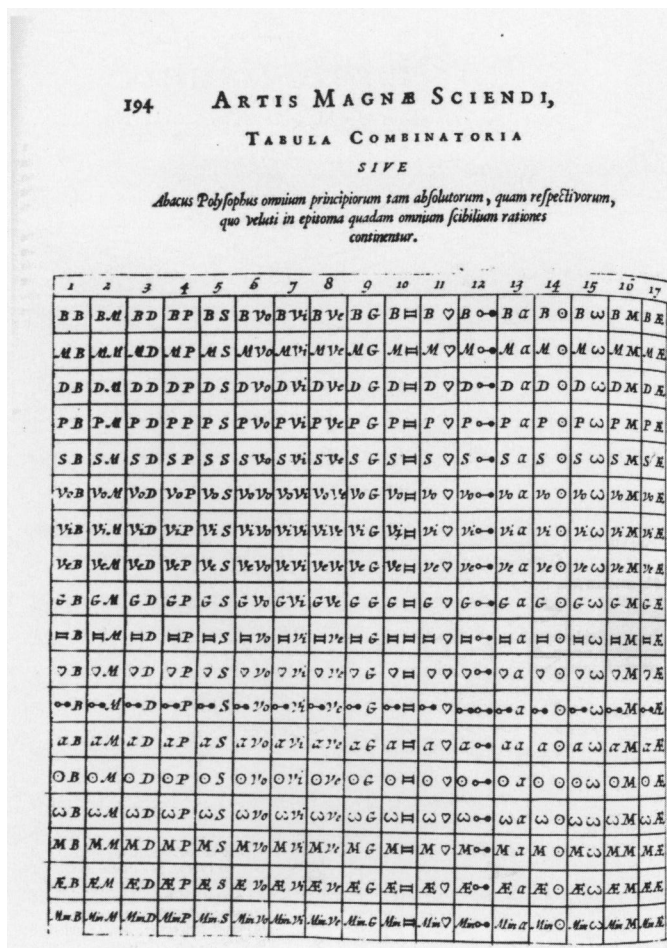 194 ARTIS MAGNÆ SCIENDI,
TABULA COMBINATORIA
SIVE
Abacus Polyſophus omnium principiorum tam abſolutorum, quam reſpectivorum,
quo veluti in epitoma quadam omnium ſcibilium rationes
continentur.
1 2 3 4 5 6 7 8 9 10 11 12 13 14 15 16 17
B B B M B D B P B S B Vo B Vi B Ve B G B ⧦ B ♡ B ⊷ B α B ⊙ B ω B M B Æ
M B M M M D M P M S M Vo M Vi M Ve M G M ⧦ M ♡ M ⊷ M α M ⊙ M ω M M M Æ
D B D M D D D P D S D Vo D Vi D Ve D G D ⧦ D ♡ D ⊷ D α D ⊙ D ω D M D Æ
P B P M P D P P P S P Vo P Vi P Ve P G P ⧦ P ♡ P ⊷ P α P ⊙ P ω P M P Æ
S B S M S D S P S S S Vo S Vi S Ve S G S ⧦ S ♡ S ⊷ S α S ⊙ S ω S M S Æ
Vo B Vo M Vo D Vo P Vo S Vo Vo Vo Vi Vo Ve Vo G Vo ⧦ Vo ♡ Vo ⊷ Vo α Vo ⊙ Vo ω Vo M Vo Æ
Vi B Vi M Vi D Vi P Vi S Vi Vo Vi Vi Vi Ve Vi G Vi ⧦ Vi ♡ Vi ⊷ Vi α Vi ⊙ Vi ω Vi M Vi Æ
Ve B Ve M Ve D Ve P Ve S Ve Vo Ve Vi Ve Ve Ve G Ve ⧦ Ve ♡ Ve ⊷ Ve α Ve ⊙ Ve ω Ve M Ve Æ
G B G M G D G P G S G Vo G Vi G Ve G G G ⧦ G ♡ G ⊷ G α G ⊙ G ω G M G Æ
⧦ B ⧦ M ⧦ D ⧦ P ⧦ S ⧦ Vo ⧦ Vi ⧦ Ve ⧦ G ⧦ ⧦ ⧦ ♡ ⧦ ⊷ ⧦ α ⧦ ⊙ ⧦ ω ⧦ M ⧦ Æ
♡ B ♡ M ♡ D ♡ P ♡ S ♡ Vo ♡ Vi ♡ Ve ♡ G ♡ ⧦ ♡ ♡ ♡ ⊷ ♡ α ♡ ⊙ ♡ ω ♡ M ♡ Æ
⊷ B ⊷ M ⊷ D ⊷ P ⊷ S ⊷ Vo ⊷ Vi ⊷ Ve ⊷ G ⊷ ⧦ ⊷ ♡ ⊷ ⊷ ⊷ α ⊷ ⊙ ⊷ ω ⊷ M ⊷ Æ
α B α M α D α P α S α Vo α Vi α Ve α G α ⧦ α ♡ α ⊷ α α α ⊙ α ω α M α Æ
⊙ B ⊙ M ⊙ D ⊙ P ⊙ S ⊙ Vo ⊙ Vi ⊙ Ve ⊙ G ⊙ ⧦ ⊙ ♡ ⊙ ⊷ ⊙ α ⊙ ⊙ ⊙ ω ⊙ M ⊙ Æ
ω B ω M ω D ω P ω S ω Vo ω Vi ω Ve ω G ω ⧦ ω ♡ ω ⊷ ω α ω ⊙ ω ω ω M ω Æ
M B M M M D M P M S M Vo M Vi M Ve M G M ⧦ M ♡ M ⊷ M α M ⊙ M ω M M M Æ
Æ B Æ M Æ D Æ P Æ S Æ Vo Æ Vi Æ Ve Æ G Æ ⧦ Æ ♡ Æ ⊷ Æ α Æ ⊙ Æ ω Æ M Æ Æ
Min B Min M Min D Min P Min S Min Vo Min Vi Min Ve Min G Min ⧦ Min ♡ Min ⊷ Min α Min ⊙ Min ω Min M Min Æ